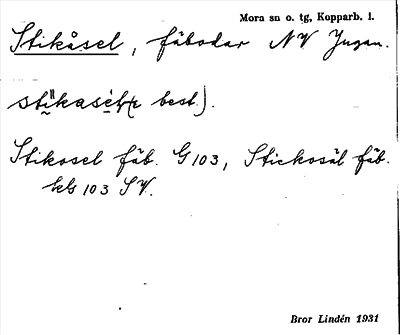 Mora sn o. tg, Kopparb. l.
Stikåsel, fäbodar NV Jugan.
stikasèt(e best.).
Stikosel fäb. G 103, Stickosäl fäb.
kls 103 SV.
Bror Lindén 1931